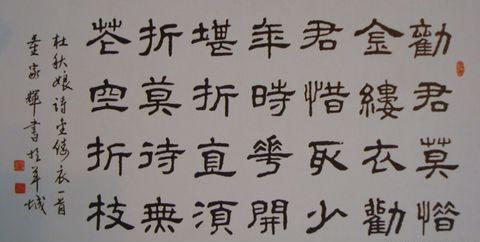 勸君莫惜
金縷衣勸
君惜取少
年時華開
堪折直須
折莫待無
花空折枝
杜秋娘诗金缕衣一首
董家輝書於羊城